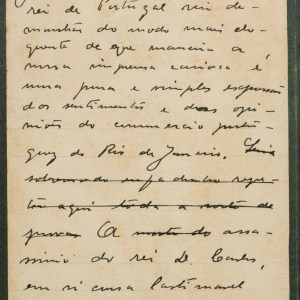 rei de Portugal veio de-
monstrar do modo mais elo-
quente de que maneira a
nossa imprensa carioca é
uma pura e simples expressão
dos sentimentos e das opi-
niões do commercio portu-
guez do Rio de Janeiro. Seria
sobremodo enfadonho repe-
tir aqui toda a sorte de
provas A morte do assas-
sinio do rei D. Carlos,
em si cousa lastimavel